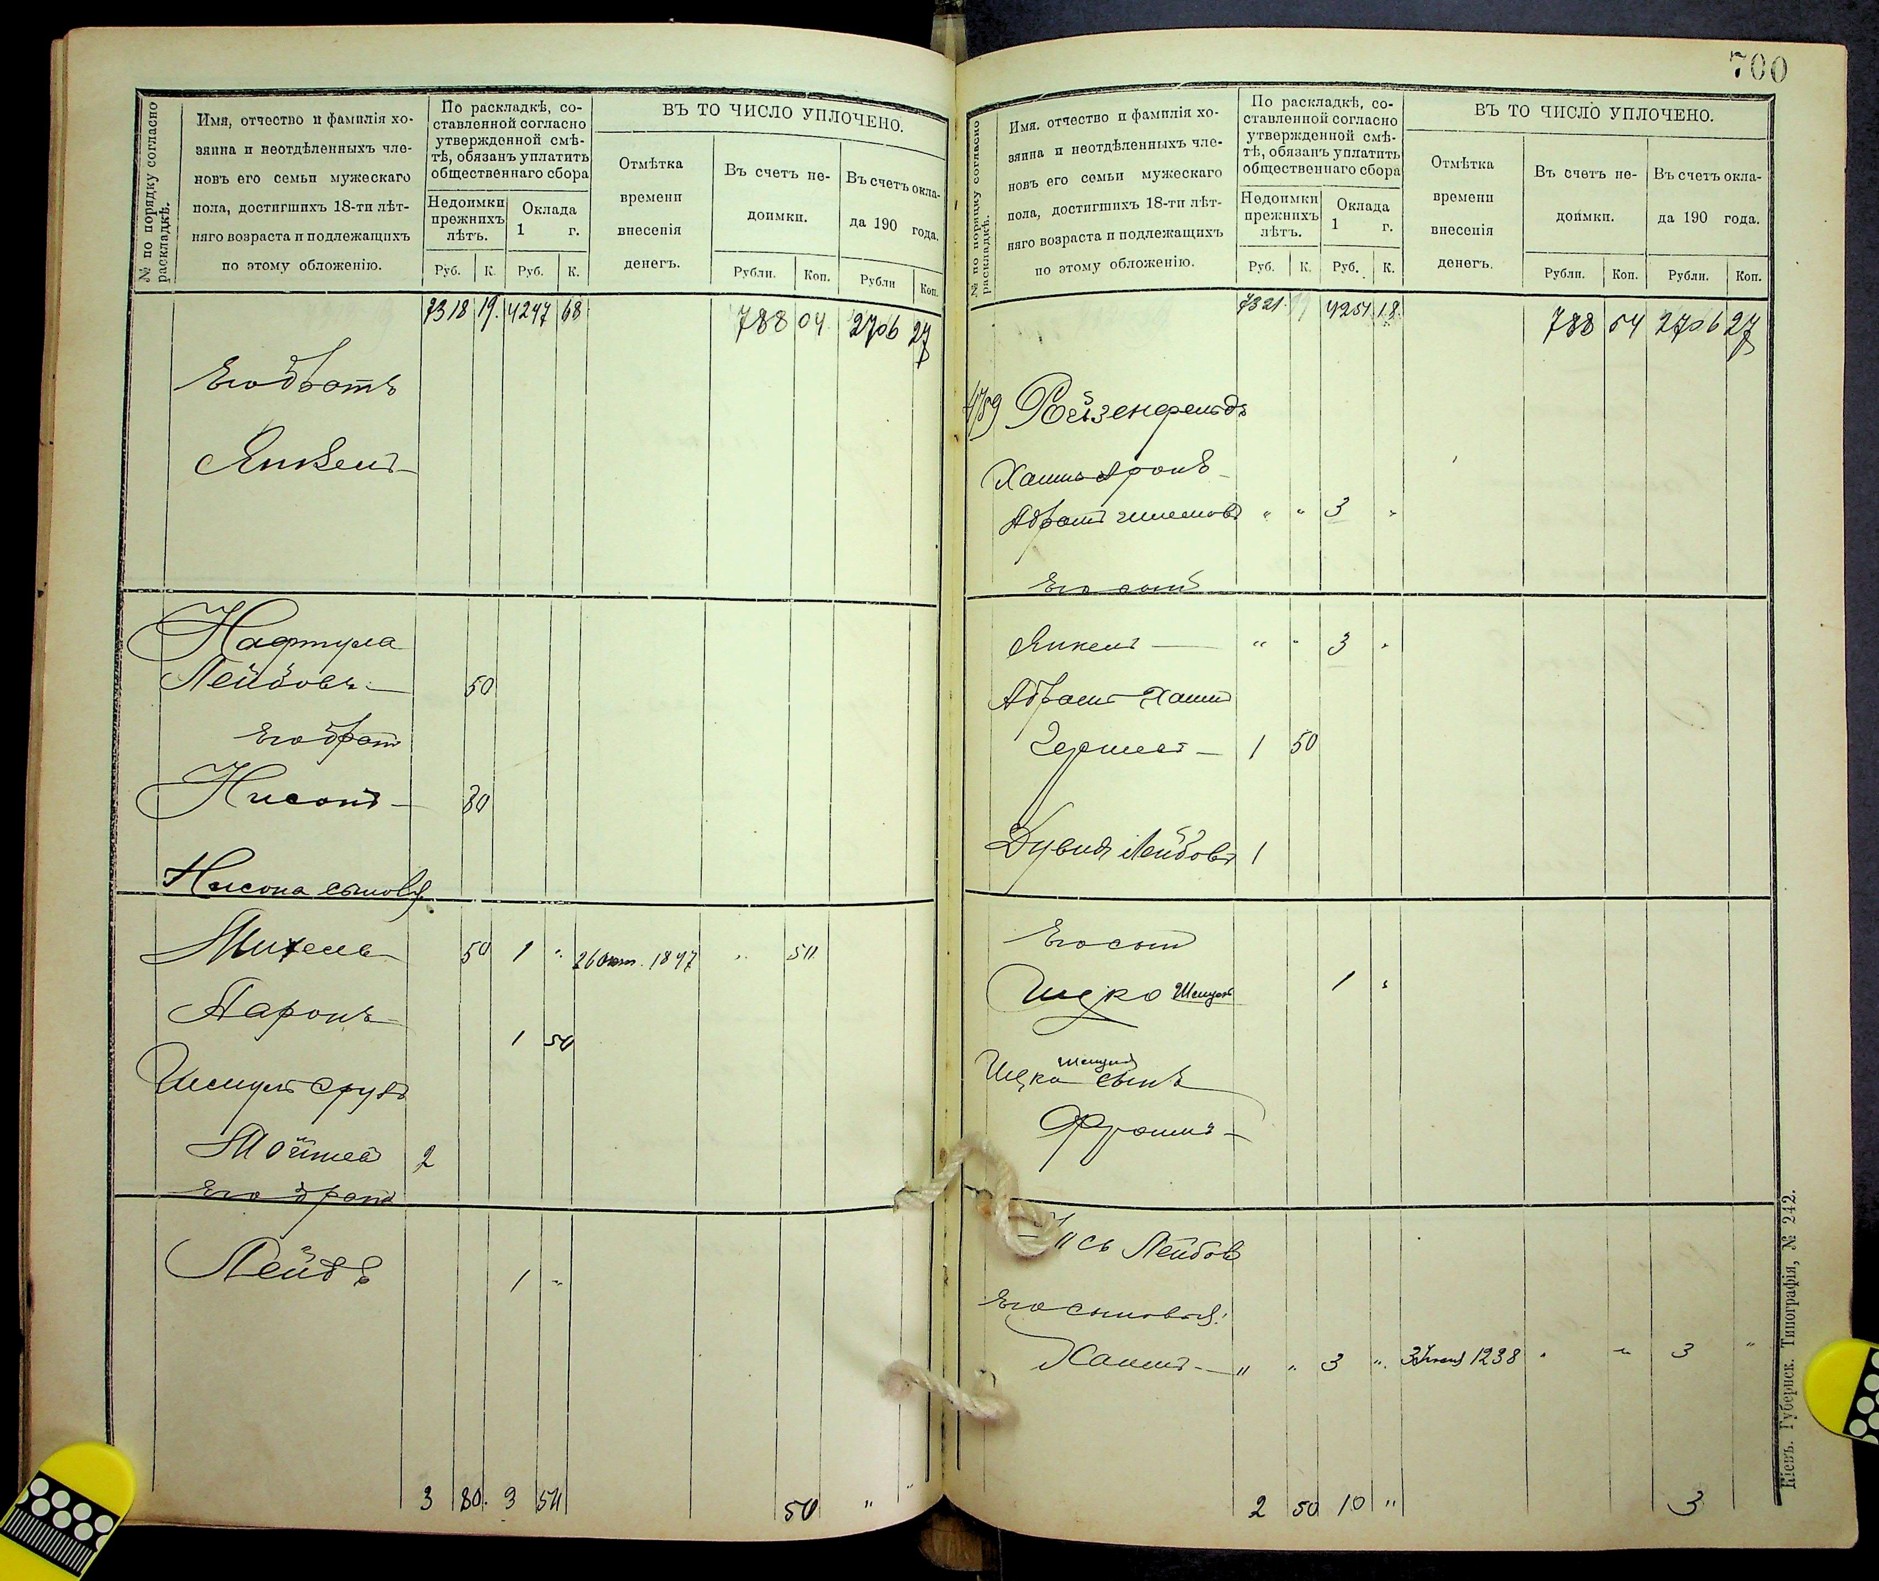 700
№ по порядку согласно раскладкѣ.
Имя, отчество и фамилія хо-
зяина и неотдѣленныхъ чле-
новъ его семьи мужескаго
пола, достигшихъ 18-ти лѣт-
няго возраста и подлежащихъ
по этому обложенію.
По раскладкѣ, со-
ставленной согласно
утвержденной смѣ-
тѣ, обязанъ уплатить
общественнаго сбора
Недоимки прежнихъ лѣтъ.
Оклада 1 г.
Руб. К. Руб. К.
ВЪ ТО ЧИСЛО УПЛОЧЕНО.
Отмѣтка
времени
внесенія
денегъ.
Въ счетъ не-
доимки.
Въ счетъ окла-
да 190 года.
Рубли. Коп. Рубли Коп.
7318 19. 4247 68 788 04 2706 27
Его братъ
Янкель
Нафтула
Лейбовъ 50
Его братъ
Нисонъ 80
Нисона сыновья
Михель 50 1 " 26 1897 " 50
Ааронъ
1 50
Шмуль Сруль
Мойшеа 2
Его братъ
Лейбъ 1 "
3 80. 3 50 50 " "
№ по порядку согласно раскладкѣ.
Имя, отчество и фамилія хо-
зяина и неотдѣленныхъ чле-
новъ его семьи мужескаго
пола, достигшихъ 18-ти лѣт-
няго возраста и подлежащихъ
по этому обложенію.
По раскладкѣ, со-
ставленной согласно
утвержденной смѣ-
тѣ, обязанъ уплатить
общественнаго сбора
Недоимки прежнихъ лѣтъ.
Оклада 1 г.
Руб. К. Руб. К.
ВЪ ТО ЧИСЛО УПЛОЧЕНО.
Отмѣтка
времени
внесенія
денегъ.
Въ счетъ не-
доимки.
Въ счетъ окла-
да 190 года.
Рубли. Коп. Рубли. Коп.
7321 4251 18 788 54 2706 27
1789 Ройзенфельдъ
Хаимъ Аронъ
Абрамъ " " 3 "
Его сынъ
Янкель " " 3 "
Абрамъ Хаимъ
Гершель 1 50
Дувидъ Лейбовъ 1
Его сынъ
Ицко Шмуль 1 "
Шмуля
Ицка сынъ
Фроимъ
Лейбов
Его сыновья:
Хаимъ " " 3 " 1238 " " 3 "
2 50 10 " 3
Кіевъ. Губернск. Типографія, № 242.